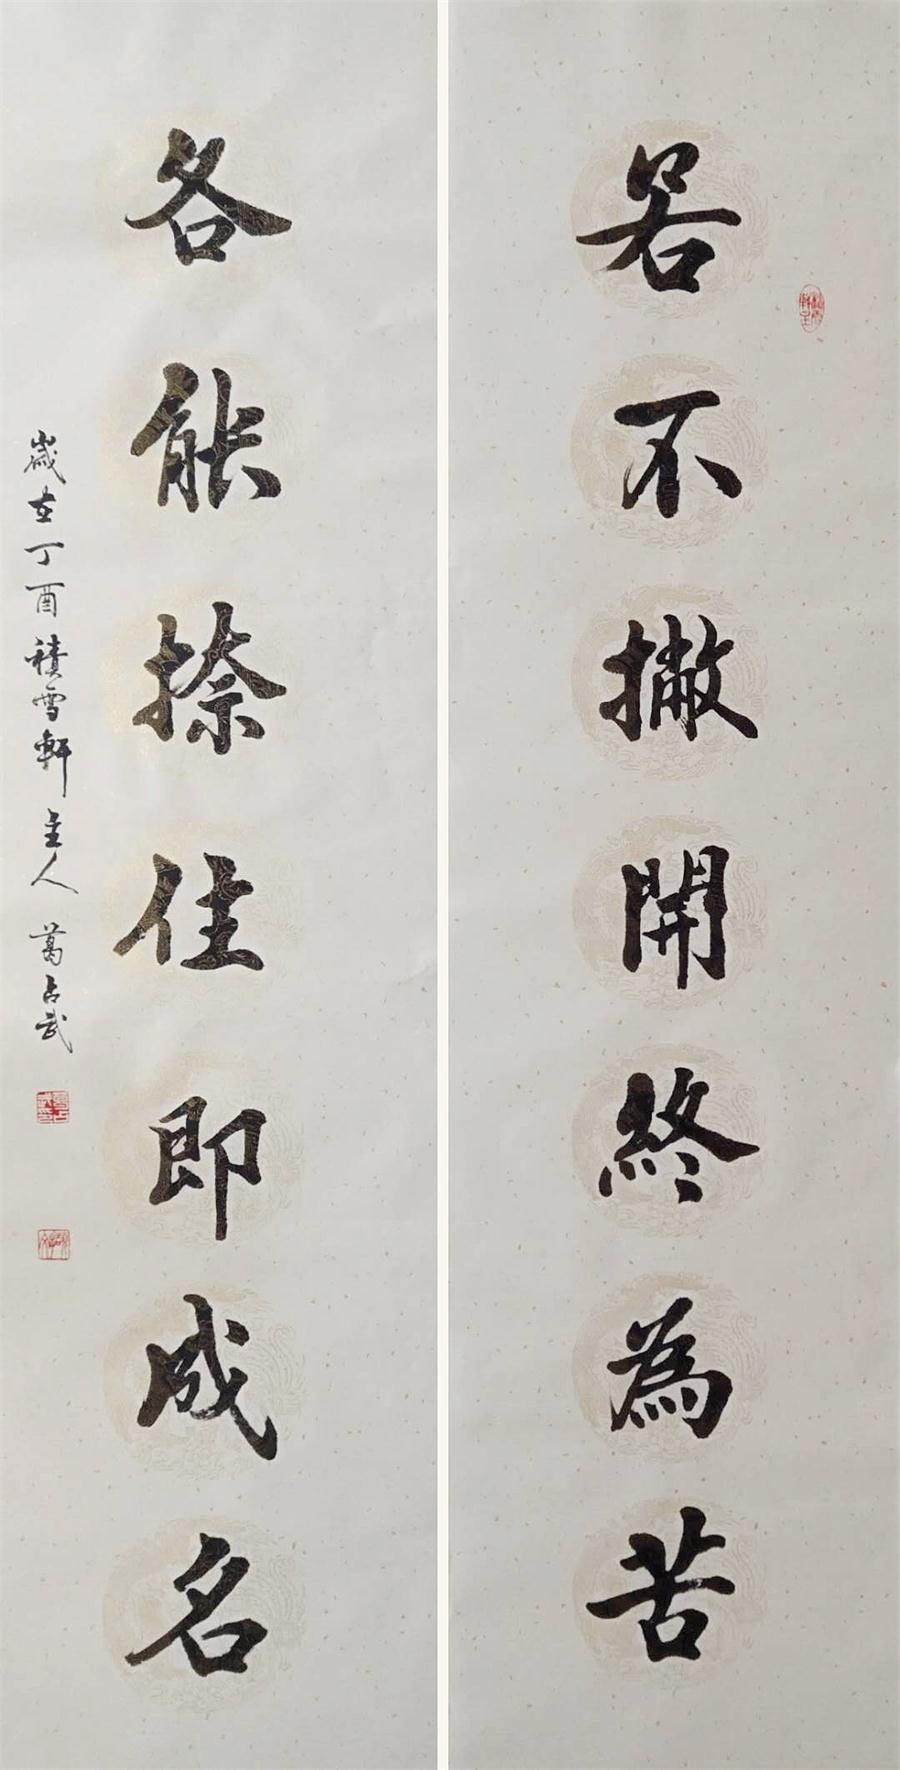 若不撇開終為苦
各能捺住即成名
歲在丁酉積雪軒主人葛占武